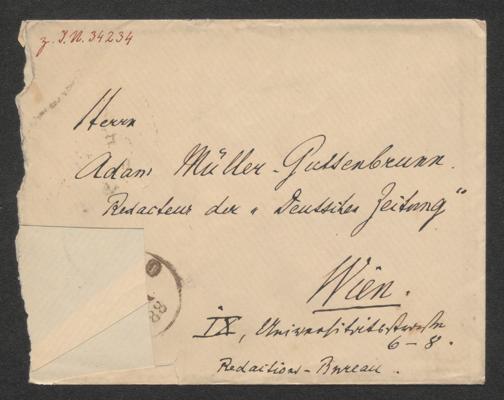 z. I.N. 34234
Herrn
Adam Müller-Guttenbrunn.
Redacteur der „Deutschen Zeitung"
Wien.
IX, Universitätsstrasse
6-8.
Redactions-Bureau.
88